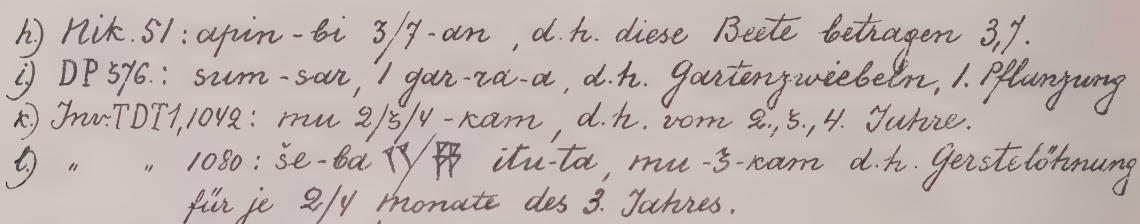 h.) Nik. 51: apin-bi 3/7-an, d.h. diese Beete betragen 3,7.
i) DP 576.: sum-sar, 1 gar-ra-a, d.h. Gartenzwiebeln, 1. Pflanzung
k.) Inv. TDT1, 1042: mu 2/3/4-kam, d.h. vom 2., 3., 4. Jahre.
l.) " " 1080: še-ba / itu-ta, mu-3-kam d.h. Gerstelöhnung
für je 2/4 Monate des 3. Jahres.